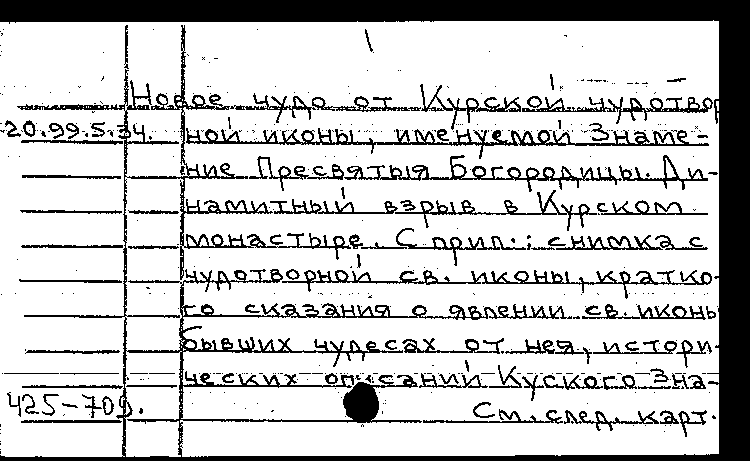 Новое чудо от Курской чудотвор
20.99.5.34. ной иконы, именуемой Знаме-
ние Пресвятыя Богородицы. Ди-
намитный взрыв в Курском
монастыре. С прил.: снимка с
чудотворной св. иконы, кратко-
го сказания о явлении св. иконы
бывших чудесах от нея, истори-
ческих описаний Куского Зна-
425-709. См. след. карт.